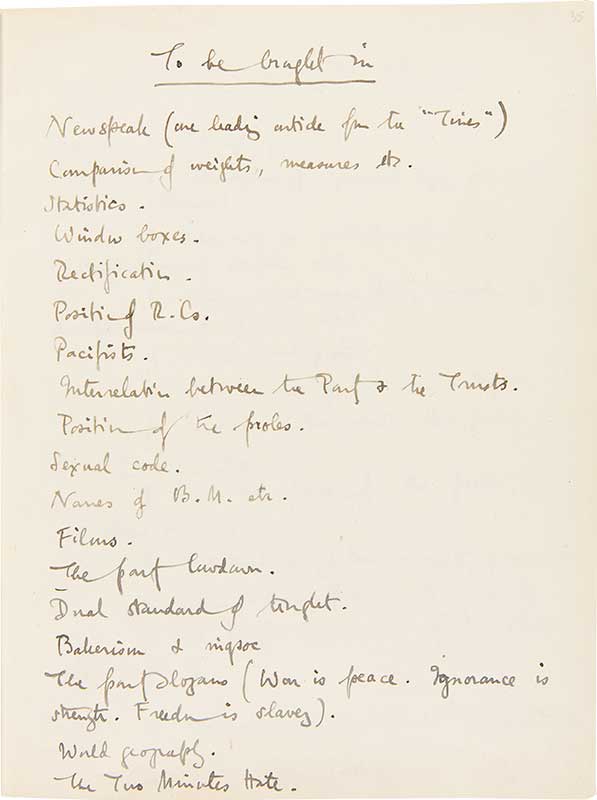 35
To be brought in
Newspeak (one leading article from the "Times")
Comparison of weights, measures etc.
Statistics.
Window boxes.
Rectification.
Position of R.Cs.
Pacifists.
Interrelation between the Party & the Trusts.
Position of the proles.
Sexual code.
Names of B.M. etc.
Films.
The party lowdown.
Dual standard of thought.
Bakerism & ingsoc
The party slogans (War is peace. Ignorance is
strength. Freedom is slavery).
World geography.
The Two Minutes Hate.